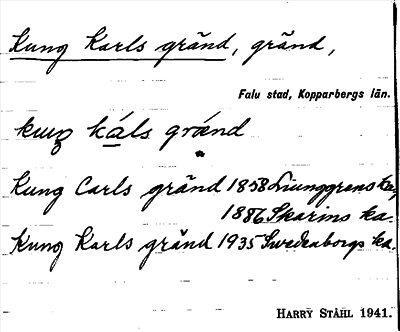 Kung Karls gränd, gränd,
Falu stad, Kopparbergs län.
kuŋ káls grænd
Kung Carls gränd 1858 Ljunggrens ka.,
1886 Skarins ka.
Kung Karls gränd 1935 Swedenborgs ka.
HARRY STÅHL 1941.